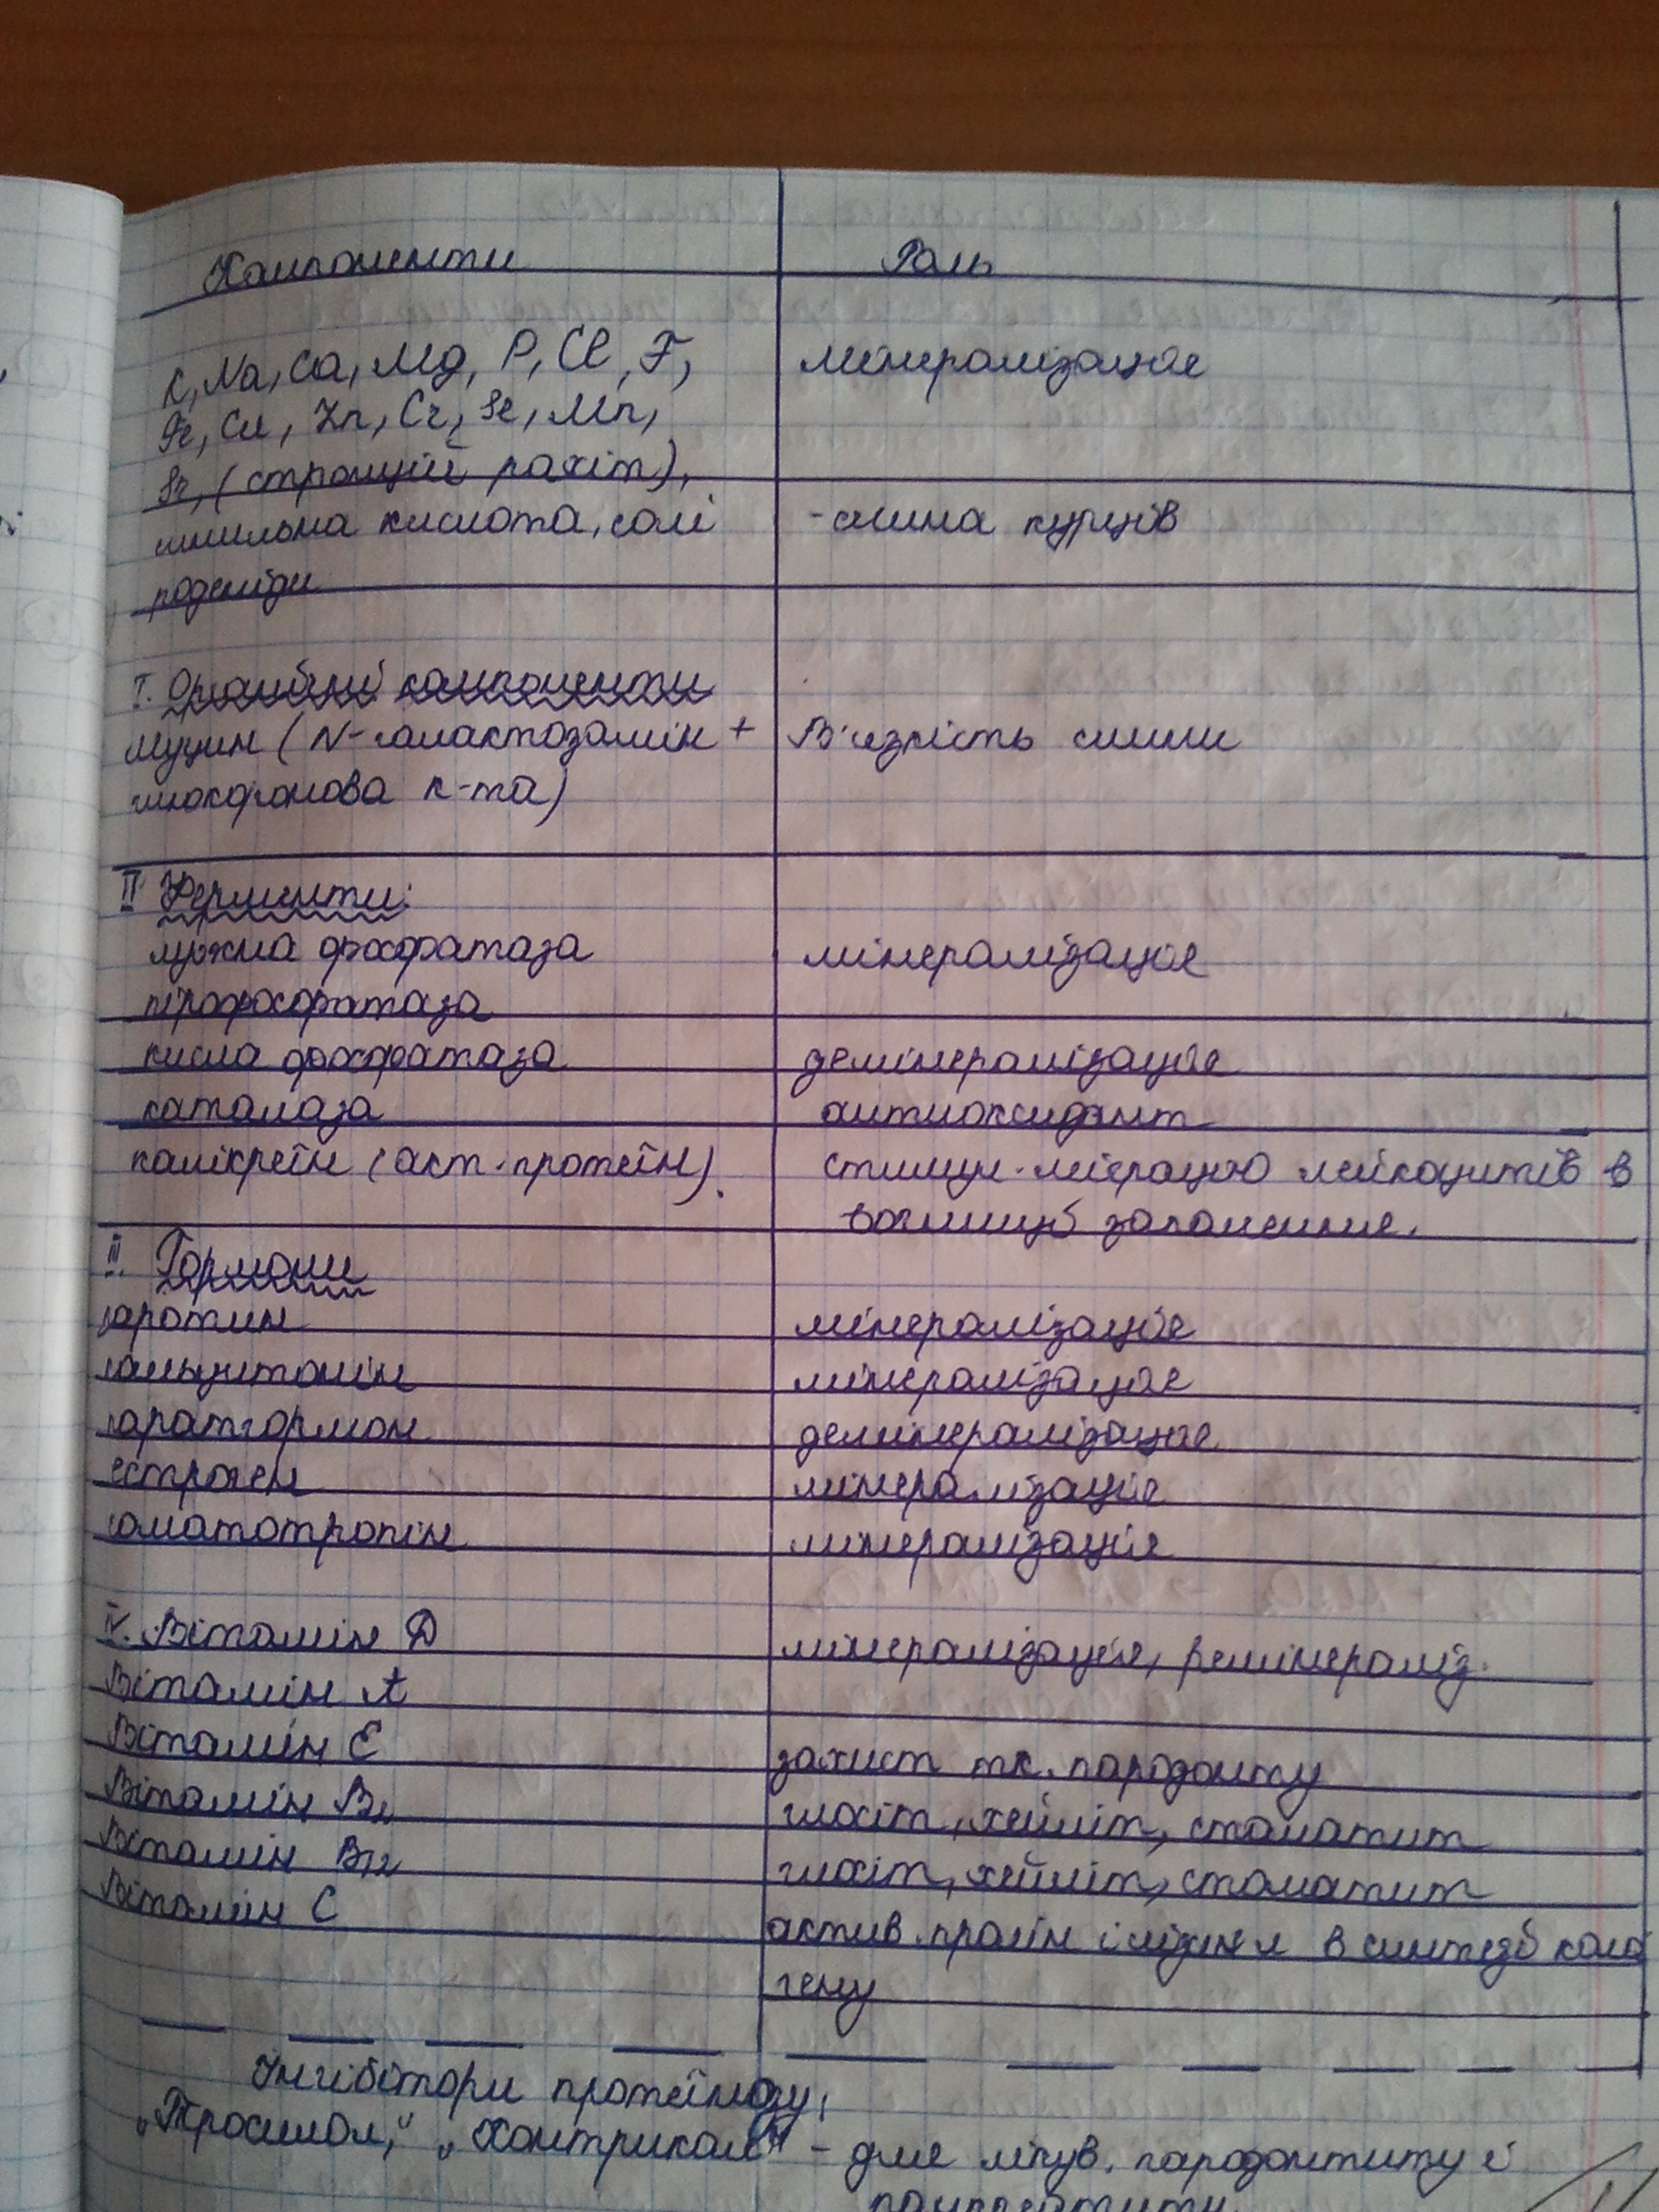 Компоненти Роль
K, Na, Ca, Mg, P, Cl, F, мінералізація
Fe, Cu, Zn, Cr, Se, Mn,
Sr, (стронцій рахіт),
синильна кислота, солі - слина курців
роданіди
I. Органічні компоненти
муцин (N-галактозамін + В'язкість слини
глюкоронова к-та)
II Ферменти:
лужна фосфатаза мінералізація
пірофосфатаза
кисла фосфатаза демінералізація
каталаза антиоксидант
калікреїн (акт. протеїн). стимул. міграцію лейкоцитів в
вогнищі запалення.
III. Гормони
паротин мінералізація
кальцитонін мінералізація
паратгормон демінералізація
естроген мінералізація
соматотропін мінералізація
IV. Вітамін D мінералізація, ремінераліз.
Вітамін A
Вітамін E захист тк. пародонту
Вітамін глосіт, хейліт, стоматит
Вітамін B12 глосіт, хейліт, стоматит
Вітамін C актив. пролін і лізин в синтезі кола
гену
Інгібітори протеїнозу,
„Трасилол," „Контрикал" - для лікув. пародонтиту і